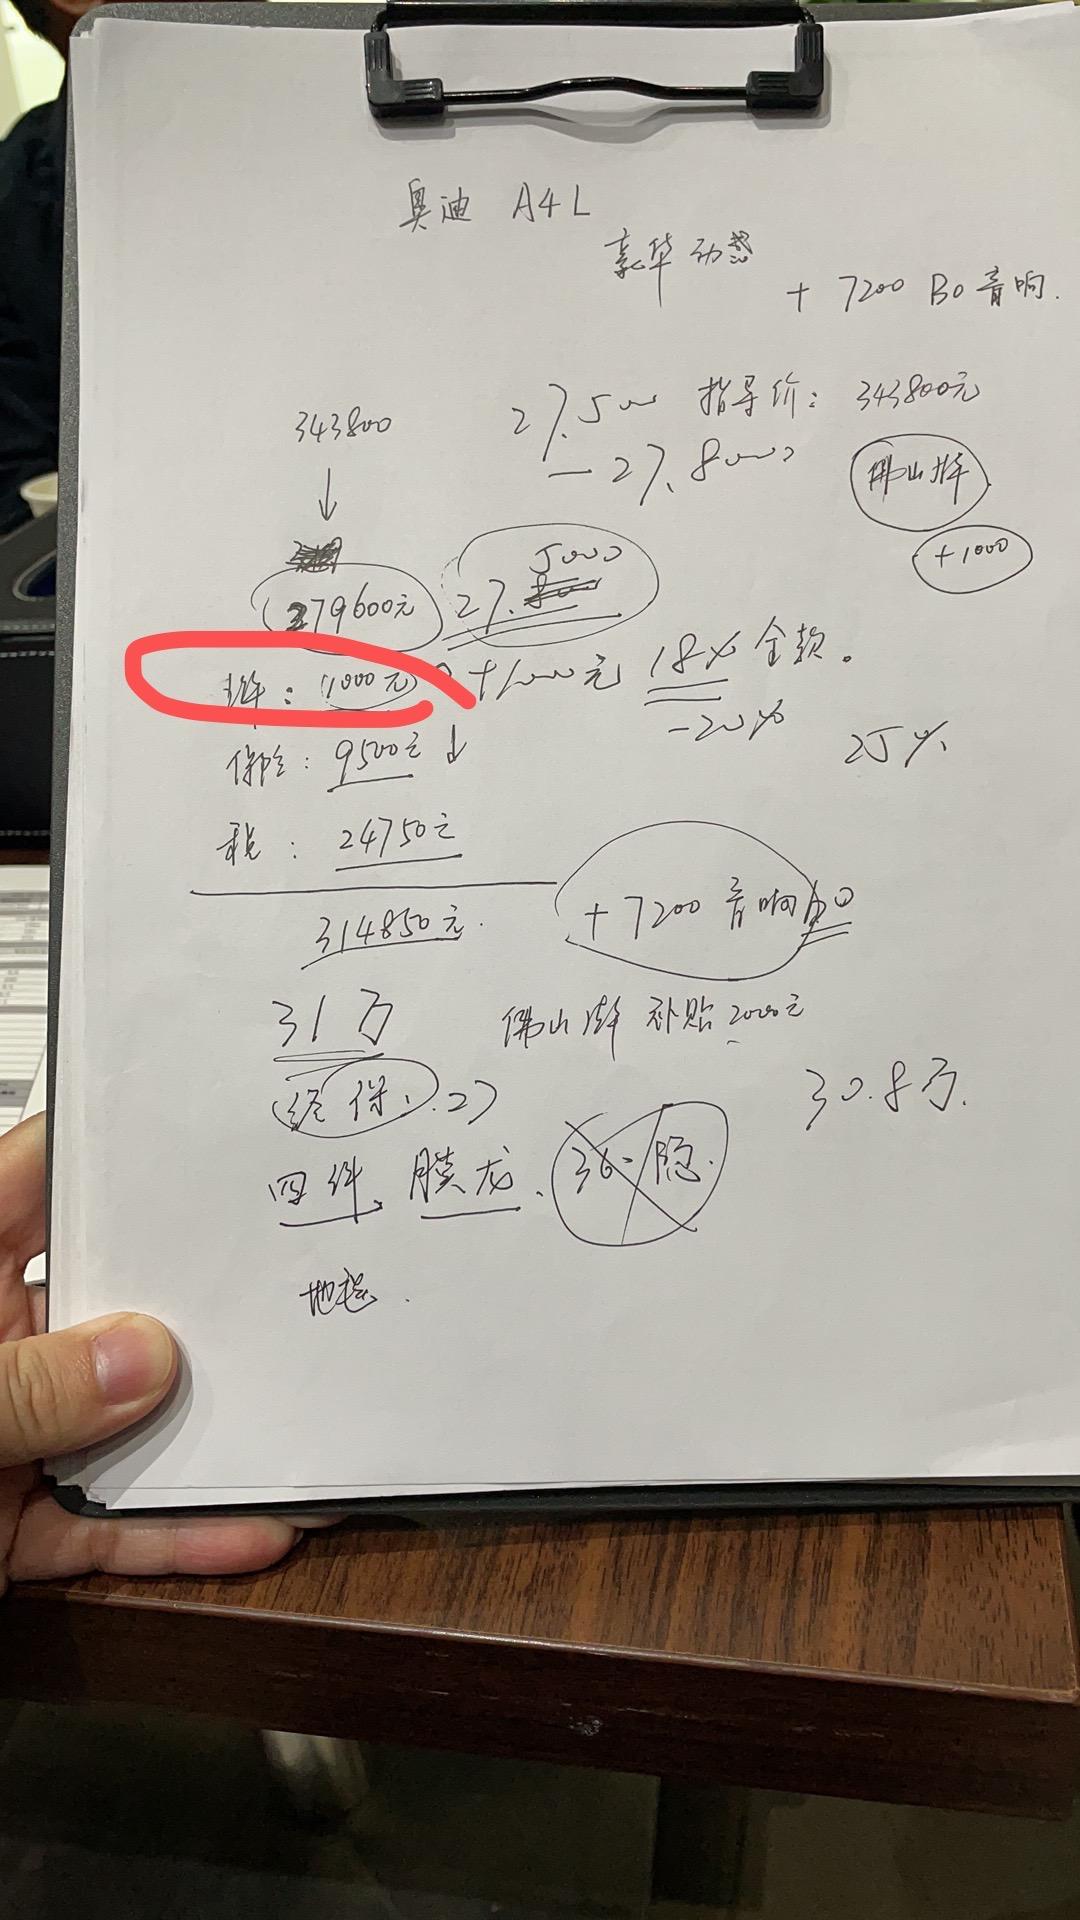 奥迪 A4L
豪华动感
+ 7200 BO音响.
343800
27.5000 指导价: 343800元
- 27.8000
佛山牌
+1000
279600元
27.5000
牌: 1000元 +1000元 18% 全款。
-20%
25%
保险: 9500元 ↓
税: 24750元
314850元.
+7200 音响BO
31万
佛山牌 补贴 2000元
(终保, 2)
30.8万.
四件, 膜龙. 360 隐.
地毯.